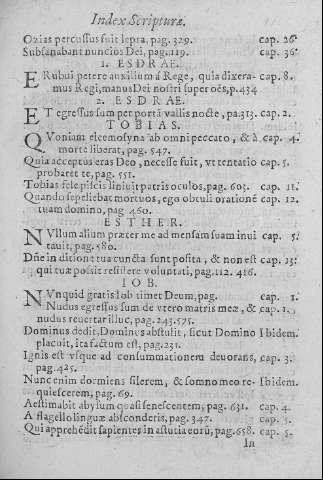 Index Scripturæ.
Ozias percussus fuit lepra, pag. 329. cap. 26.
Subsanabant nuncios Dei, pag. 119. cap. 36.
1. ESDRAE.
ERubui petere auxiliũ á Rege, quia dixera- cap. 8.
mus Regi, manus Dei nostri super oẽs, p.434
2. ESDRAE.
ET egressus sum per portã vallis nocte, pa.313. cap. 2.
TOBIAS.
QVoniam eleemosyna ab omni peccato, & à cap. 4.
morte liberat, pag. 547.
Quia acceptus eras Deo, necesse fuit, vt tentatio cap. 5.
probaret te, pag. 551.
Tobias fele piscis liniuit patris oculos, pag. 603. cap. 11.
Quando sepeliebat mortuos, ego obtuli orationẽ cap. 12.
tuam domino, pag. 460.
ESTHER.
NVllum alium præter me ad mensam suam inui cap. 5.
tauit, pag. 580.
Dñe in ditione tua cuncta sunt posita, & non est cap. 13.
qui tuæ possit resistere voluntati, pag. 112. 416.
IOB.
NVnquid gratis Iob timet Deum, pag. cap. 1.
Nudus egressus sum de vtero matris meæ, & cap. 1.
nudus reuertar illuc, pag. 243. 575.
Dominus dedit, Dominus abstulit, sicut Domino Ibidem.
placuit, ita factum est, pag. 231.
Ignis est vsque ad consummationem deuorans, cap. 3.
pag. 425.
Nunc enim dormiens silerem, & somno meo re- Ibidem.
quiescerem, pag. 69.
Aestimabit abysum quasi senescentem, pag. 631. cap. 4.
A flagello linguæ absconderis, pag. 347. cap. 5.
Qui apprehẽdit sapientes in astutia eorũ, pag. 658. cap. 5.
In